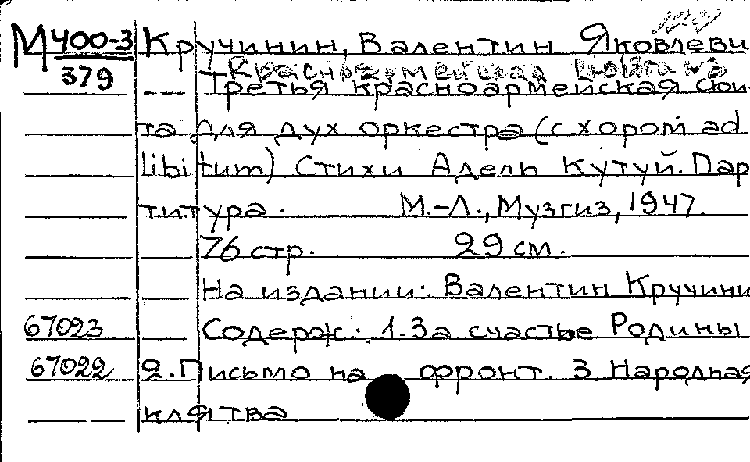 М 400-3 Кручинин, Валентин Яковлеви
379 Красноармейская сюита №3
--- Третья красноармейская сюи
та для дух оркестра (с хором ad
libitum) Стихи Адель Кутуй. Пар
титура. М.-Л., Музгиз, 1947.
76 стр. 29 см.
На издании: Валентин Кручини
67023 Содерж: 1. За счастье Родины
67022 2. Письмо на фронт. 3 Народная
клятва